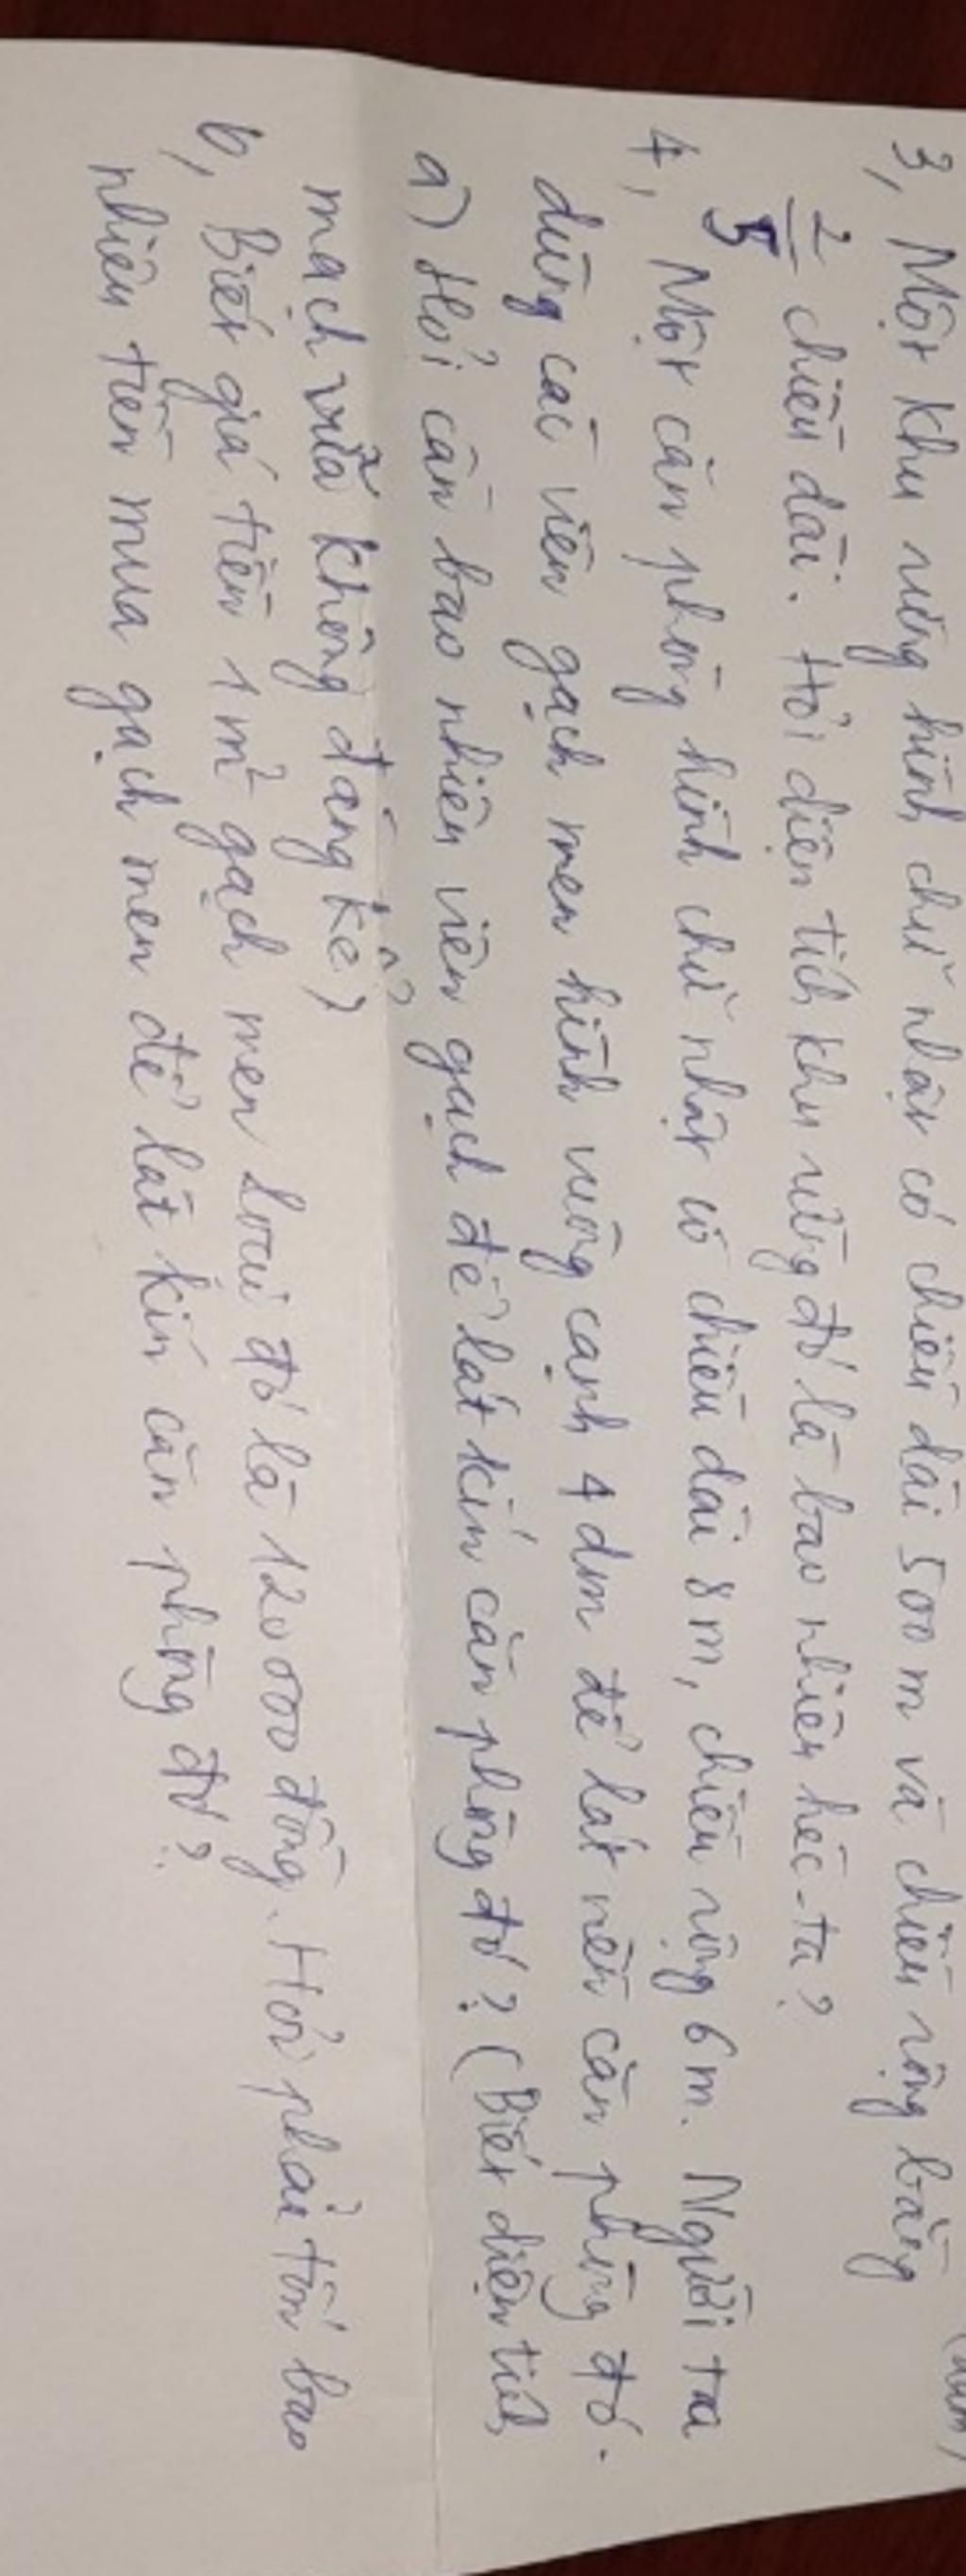 3, Một khu rừng hình chữ nhật có chiều dài 500 m và chiều rộng bằng
2/5 chiều dài. Hỏi diện tích khu rừng đó là bao nhiêu héc-ta?
4, Một căn phòng hình chữ nhật có chiều dài 8 m, chiều rộng 6 m. Người ta
dùng các viên gạch men hình vuông cạnh 4 dm để lát nền căn phòng đó.
a) Hỏi cần bao nhiêu viên gạch để lát kín căn phòng đó? (Biết diện tích
mạch vữa không đáng kể)
b, Biết giá tiền 1 m² gạch men loại đó là 120 000 đồng. Hỏi phải tốn bao
nhiêu tiền mua gạch men để lát kín căn phòng đó?